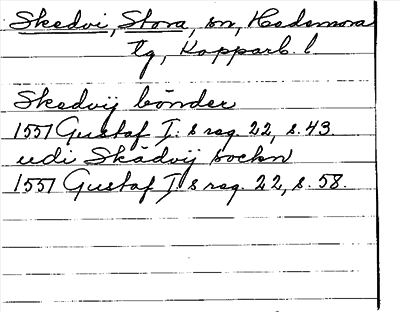 Skedvi, Stora, sn, Hedemora
tg, Kopparb. l
Skedvij bönder
1551 Gustaf I: s reg. 22, s. 43.
udi Skädvij sockn
1551 Gustaf I: s reg. 22, s. 58.